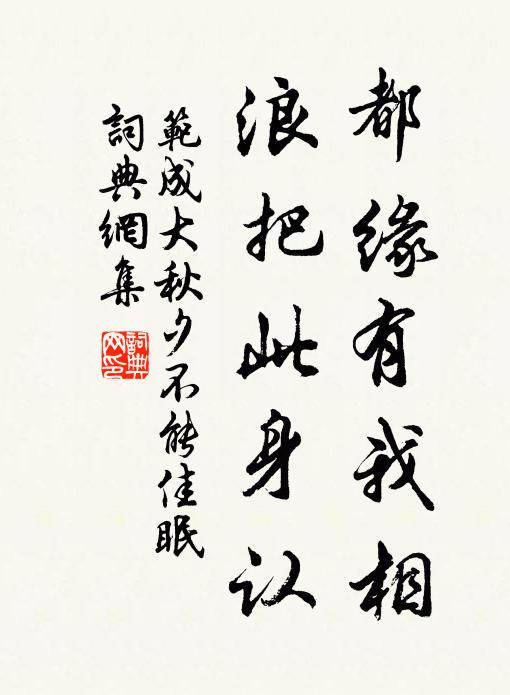 都缘有我相
浪把此身认
範成大秋夕不能佳眠
詞典網集
詞典網印